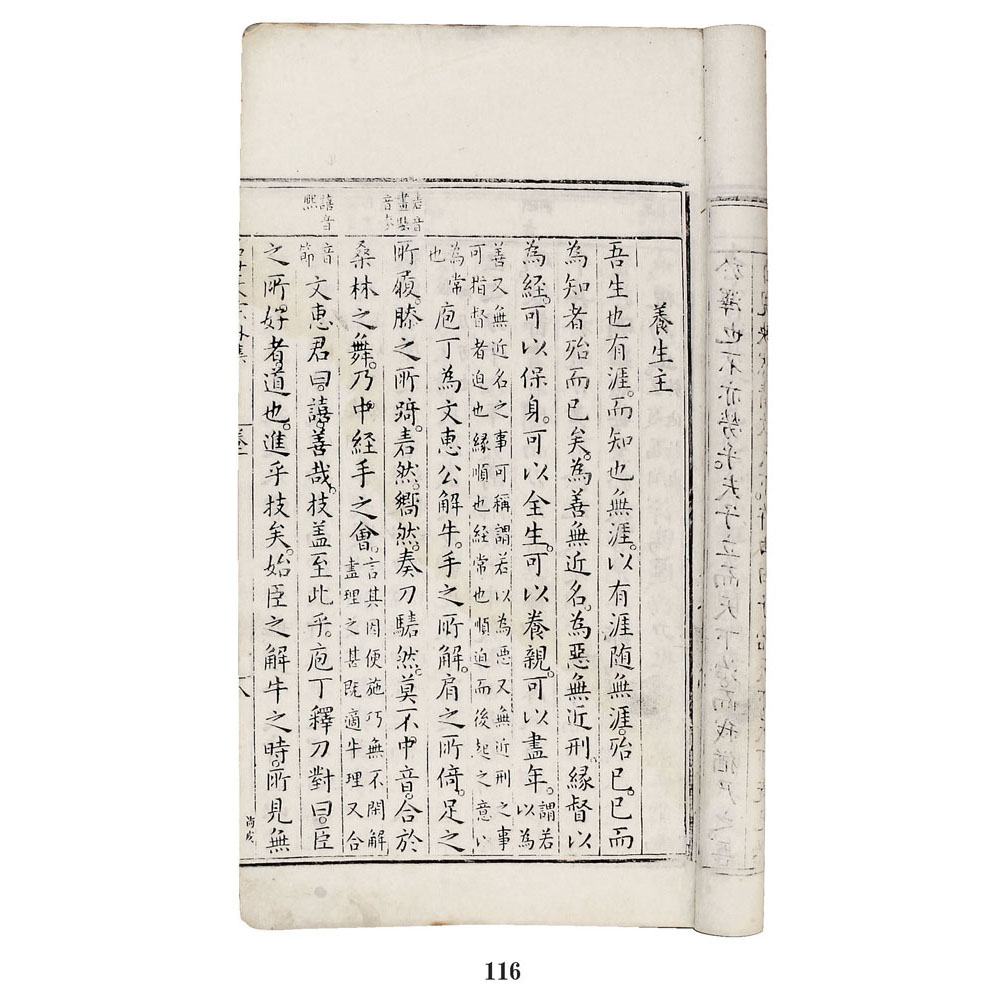 養生主
吾生也有涯。而知也無涯。以有涯随無涯。殆已。已而
為知者殆而已矣。為善無近名。為惡無近刑。縁督以
為經。可以保身。可以全生。可以養親。可以盡年。謂若
以為
善又無近名之事可稱謂若以為惡又無近刑之事
可指督者迫也縁順也経常也順迫而後起之意以
為常
也
庖丁為文惠公解牛。手之所解。肩之所倚。足之
砉音
畫騞
所履。膝之所踦。砉然。嚮然。奏刀騞然。莫不中音。合於
桑林之舞。乃中経手之會。言其因便施巧無不閑解
盡理之甚既適牛理又合
譆音
熙
音
節
文惠君曰。譆。善哉。技盖至此乎。庖丁釋刀對曰。臣
之所。好者道也。進乎技矣。始臣之解牛之時。所見無
116